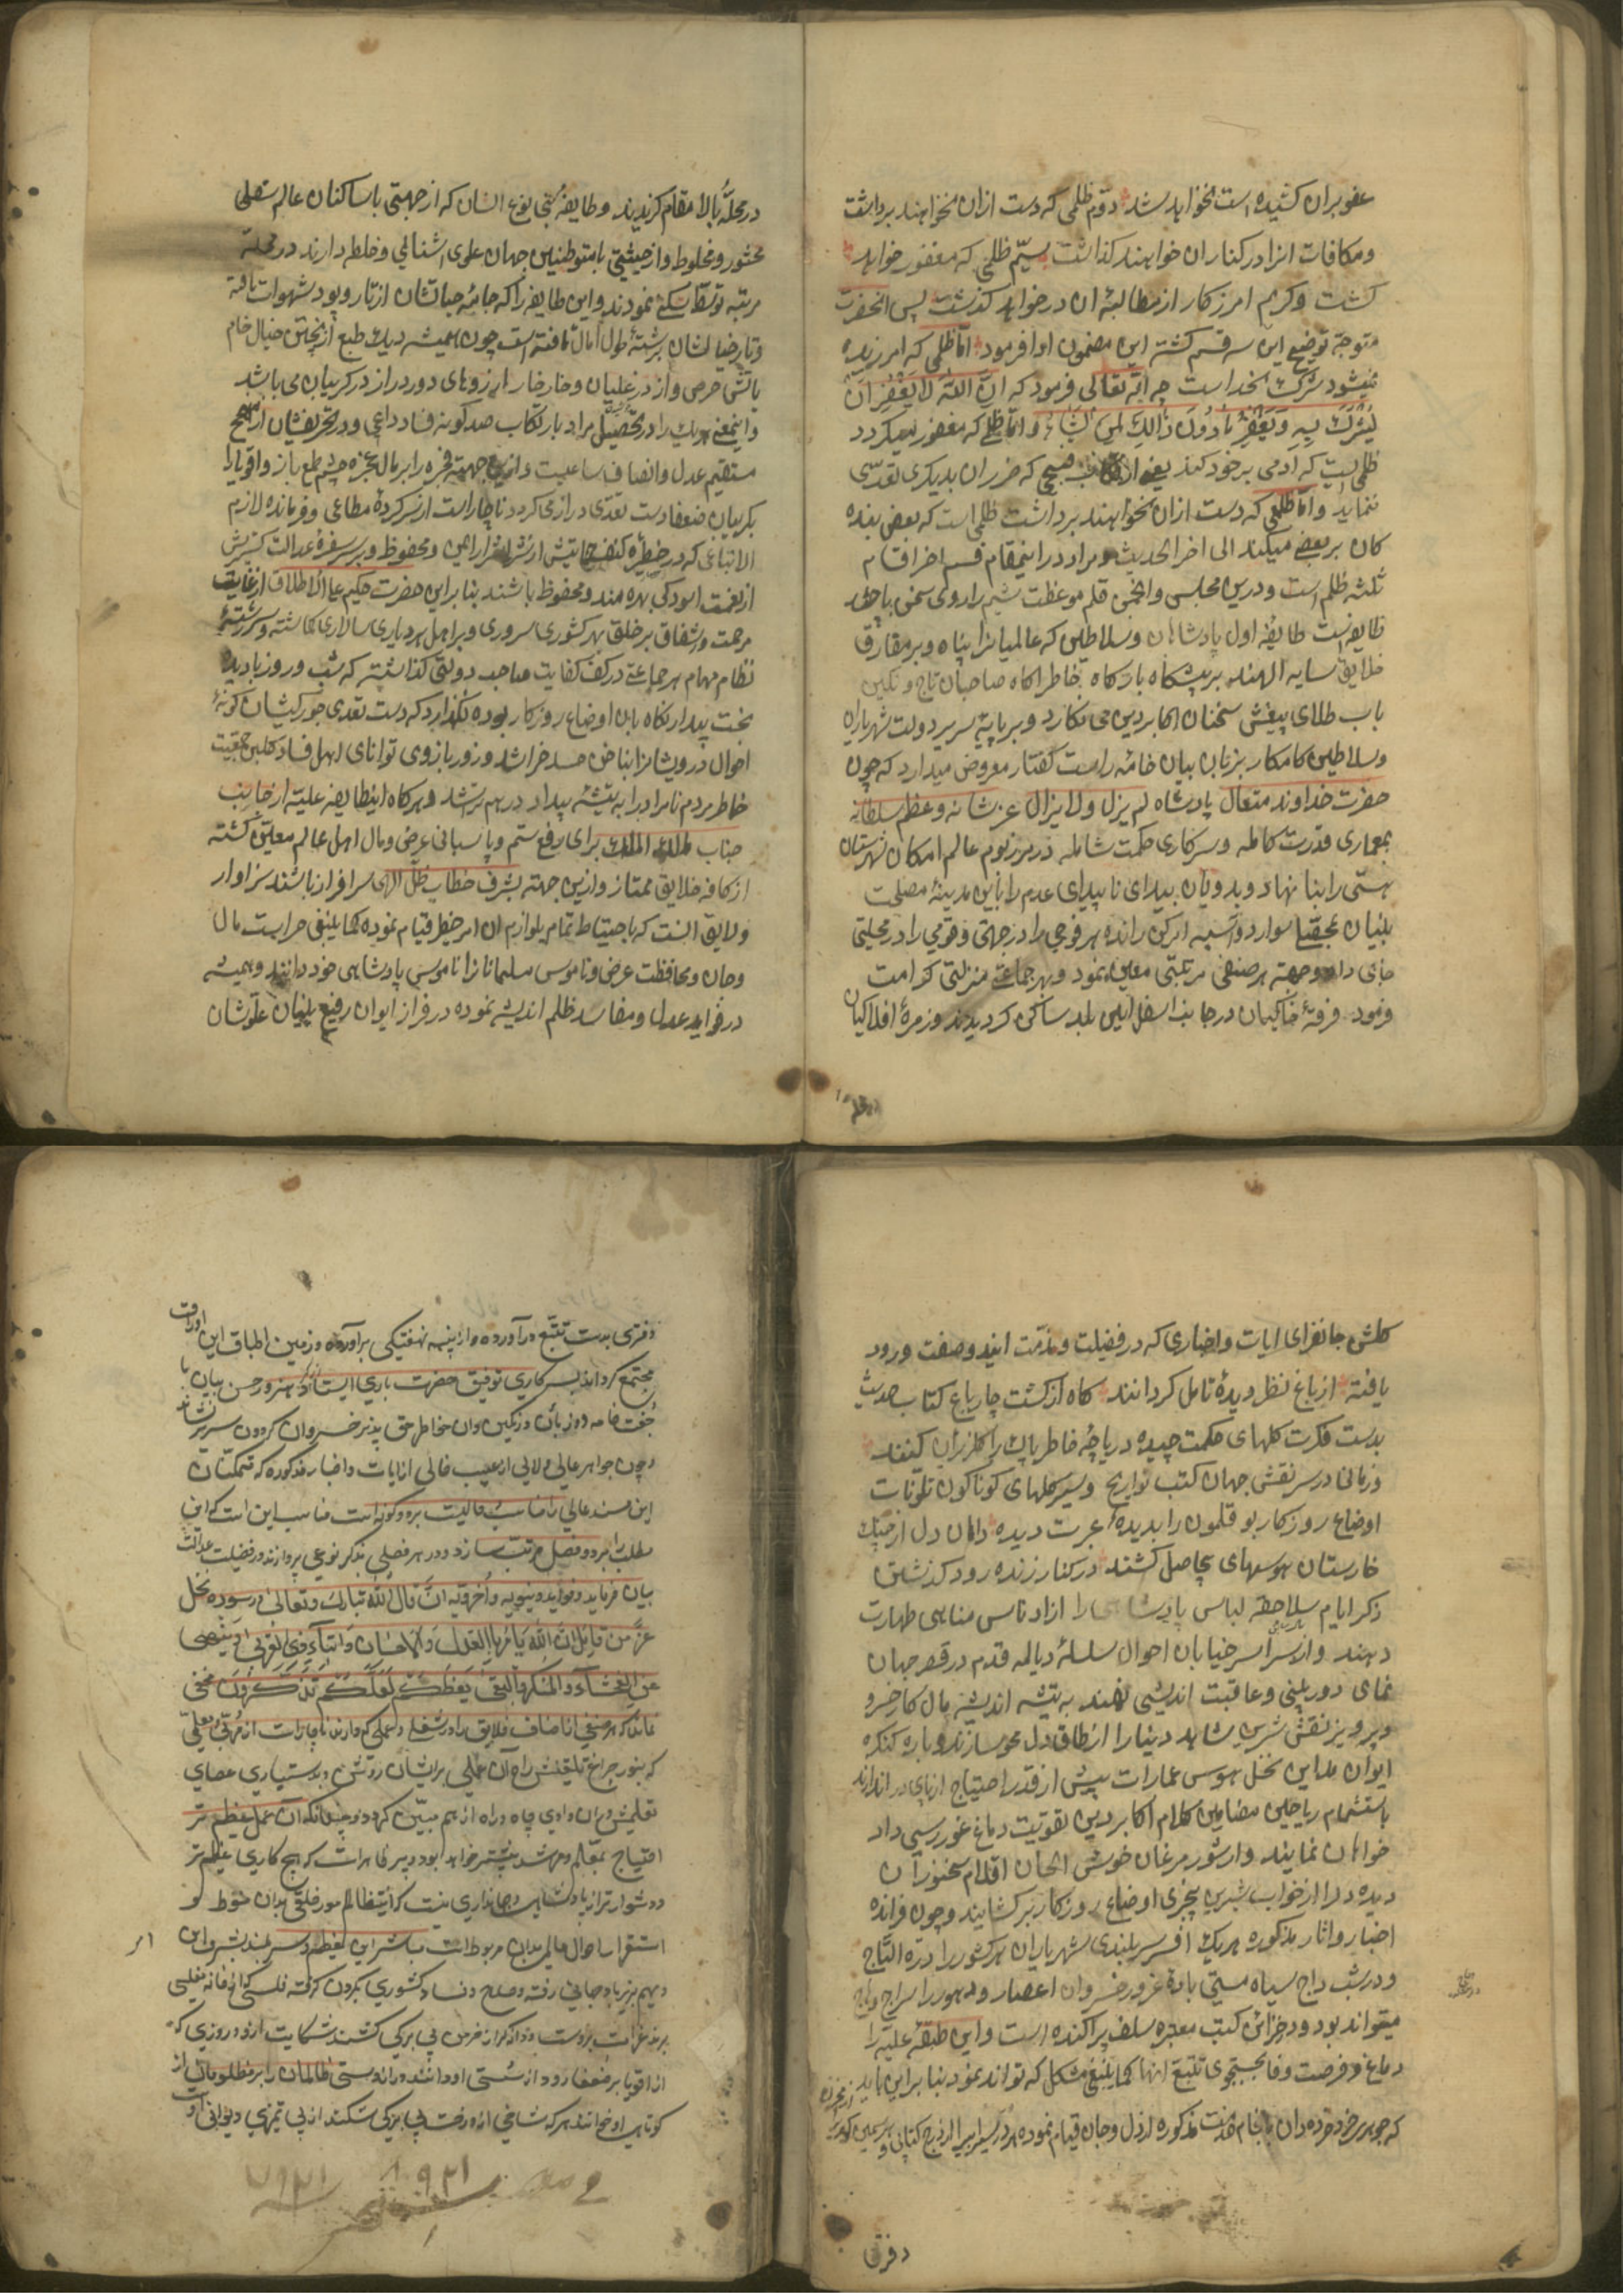 عفو بران کشیده است نخواهد شد دوّم ظلمی که دست ازان نخواهند برداشت
ومکافات انرا در کنار ان خواهند کذاشت سیّم ظلمی که مغفور خواهد
کشت وکریم امرزکار از مطالبهٔ ان در خواهد کذشت پس انحضرت
متوجّه توضیح این سه قسم کشته این مضمون ادا فرمود امّا ظلمی که امرزیده
نمیشود شرک بخداست چه الله تعالی فرمود که انّ الله لا یغفر ان
یشرک به ویغفر ما دون ذالک لمن یشاء وامّا ظلمی که مغفور میکردد
ظلمیست که آدمی بر خود کند یعنی ارتکاب قبیح که ضرر ان بدیکری تعدّی
ننماید وامّا ظلمی که دست ازان نخواهند برداشت ظلمی است که بعض بنده
کان بر بعضی میکنند الی اخر الحدیث ومراد در اینمقام قسم اخر اقسام
ثلثه ظلم است ودرین مجلس وانجمن قلم موعظت شیم را روی سخن با چند
طایفه است طایفهٔ اول پادشاهان وسلاطین که عالمیانرا پناه وبر مفارق
خلایق سایه الهند بر پیشکاه بارکاه خاطر اکاه صاحبان تاج ونکین
باب طلای بیغش سخنان اکابر دین می نکارد وبر پایهٔ سریر دولت شهریاران
وسلاطین کامکار بزبان بیان خامهٔ راست کفتار معروض میدارد که چون
حضرت خداوند متعال پادشاه لم یزل ولا یزال عز شانه وعظم سلطانه
بمعماری قدرت کامله وسرکاری حکمت شامله در مرز بوم عالم امکان شهرستان
هستی را بنا نهاد وبدویان بیدای ناپیدای عدم را باین مدینهٔ مصلحت
بنیان
جای داد وجهة هر صنفی مرتبتی معین نمود وبهر جماعتی منزلتی کرامت
فرمود فرقهٔ خاکیان در جانب اسفل این بلد ساکن کردیدند وزمرهٔ افلاکیان
در محلّهٔ بالا مقام کزیدند وطایفهٔ نجی نوع انسان که از جهتی با ساکنان عالم سفلی
محشور ومخلوط واز حیثیتی با متوطنین جهان علوی اشنائی وخلطه دارند در محلّه
مرتبه توسّط سکنی نمودند واین طایفه را که جامهٔ حیاتشان از تار وپود شهوات بافته
وتار خیالشان برشتهٔ طول امال تافته است چون همیشه دیک طبع از پختن خیال خام
باتش حرص واز در غلیان وخار خار ارزوهای دور دراز در کریبان می باشد
واینمعنی هریک را در تحصیل مراد بارتکاب صد کونه فساد داعی ودر تحریفشان از نهج
مستقیم عدل وانصاف ساعیست وازین جهة فجره را بر مال عجزه چشم طمع باز واقویا را
بکریبان ضعفا دست تعدّی دراز می کردد ناچار است از سرکردهٔ مطاعی وفرماندهٔ لازم
الاتباعی که در حظیرهٔ کنف حمایتش از شرّ اشرار ایمن ومحفوظ وبر سر سفرهٔ عدالت کسترش
از نعمت اسودکی بهره مند ومحظوظ باشند بنابراین حضرت حکیم علی الاطلاق از غایت
مرحمت واشفاق بر خلق هر کشوری سروری وبر اهل هر دیاری سالاری کماشته وسررشتهٔ
نظام مهام هر جماعتی در کف کفایت صاحب دولتی کذاشته که شب وروز بادیدهٔ
بخت بیدار نکاه بان اوضاع روزکار بوده نکذارد که دست تعدی جور کیشان کونهٔ
احوال درویشانرا بناخن حسد خراشد وزور بازوی توانای اهل فساد کلبن جمعیت
خاطر مردم نامراد را به تیشهٔ بیداد درهم تراشد وهرکاه اینطایفه علیّه از جانب
جناب مالک الملک برای رفع ستم وپاسبانی عرض ومال اهل عالم معلّق کشته
از کافه خلایق ممتاز وازین جهته بشرف خطاب ظل الهی سرافراز باشند سزاوار
ولایق انست که باحتیاط تمام بلوازم ان امر خطیر قیام نموده کما ینبغی حراست مال
وجان ومحافظت عرض وناموس مسلمانان را ناموس پادشاهی خود دانند وهمیشه
در فواید عدل ومفاسد ظلم اندیشه نموده در فراز ایوان رفیع بنیان علوّشان
کلشن جانفزای ایات واخباری که در فضیلت ومذمّت ایندو صفت ورود
یافته از باغ نظر دیدهٔ تامل کردانند کاه از کشت چار باغ کتاب حدیث
بدست فکرت کلهای حکمت چیده دریاچهٔ خاطر پاک را کلریزان کنند
وزمانی در سر نقش جهان کتب تواریخ وسیر کلهای کوناکون تلونات
اوضاع روزکار بو قلمون را بدیدهٔ عبرت دیده دامان دل از چنک
خارستان هوسهای بیحاصل کشند در کنار زنده رود کذشتن
ذکر ایام سلاحقه لباس پادشاهی را از ادناس مناهی طهارت
دهند واز سراسر خیابان احوال سلسلهٔ دیالمه قدم در قصر جهان
نمای دور بینی وعاقبت اندیشی نهند به تیشه اندیشه مال کار خسرو
وپرویز نقش شیرین شاهد دنیا را از طاق دل محو سازند وباره کنکره
ایوان مداین نخل هوس عمارات بیش از قدر احتیاج از پای در اندازند
باستشمام ریاحین مضامین کلام اکابر دین تقویت دماغ غوررسی داد
خواهان نمایند واز شور مرغان خوش الحان اقلام سخنوران
دیده دل را از خواب شیرین بیخبری اوضاع روزکار برکشایند وچون فرائد
اخبار واثار مذکوره هریک افسر سربلندی شهریاران هر کشور را درّة التاج
ودر شب داج سیاه مستی بادهٔ غرور خسروان اعصار ودهور را سراج وهاج
میتواند بود ودر خزائن کتب معتبره سلف پراکنده است واین طبقهٔ علیّه را
دماغ وفرصت وفا بجستجوی تتبع انها کما ینبغی مشکل که تواند نمود بنابراین
که جوهری خرد خرده دان بانجام خدمت مذکوره از دل وجان قیام نموده
دفتری
دفتری بدست تتبّع درآورده واز پنبه نهفتکی برآورده ودر زمین اطباق این اوراق
مجتمع کرداند بسرکاری توفیق حضرت باری ایستاد هنرور حسن بیان با
جفت خامه دو زبان
وچون جواهر عالی ولالی از عیب خالی از ایات واخبار مذکوره که متمکّنان
این مسند عالی را مناسب حالیت بر دو کونه است مناسب این است که این
مطلب را بر دو فصل مرتب سازد ودر هر فصلی بذکر نوعی پردازد در فضیلت عدالت
بیان فرماید وفواید دنیویه واخرویه ان قال الله تبارک وتعالی در سوره نحل
عزّ من قایل انّ الله یامر بالعدل والاحسان وایتاء ذی القربی وینهی
عن الفحشاء والمنکر والبغی یعظکم لعلّکم تذکّرون مخفی
نماند که هر صنفی از اصناف خلایق را در شغلی وعملی که دارند ناچار است از مربّی ومعلّمی
که بنور چراغ تلقینش راه آن عملی برایشان روشن وبدستیاری عصای
تعلیمش دران وادی چاه وراه از هم مبیّن کردد وچندانکه آن عمل عظیم تر
احتیاج بمعلّم ومرشد بیشتر خواهد بود وپر ظاهر است که هیچ کاری عظیم تر
ودشوارتر از پادشاهی وجهانداری نیست که انتظام امور خلقی بدان منوط و
استقرار احوال عالمی بدان مربوط است مباشر این
دیهیم
از اقویا بر ضعفا رود از سستی او دانند ودرازدستی ظالمان را بر مظلومان از
کوتاهی او خوانند هرکه شاخی از درخت بی برکی شکند از بی تمیزی دیوانی او
امر
۱۹۳۱